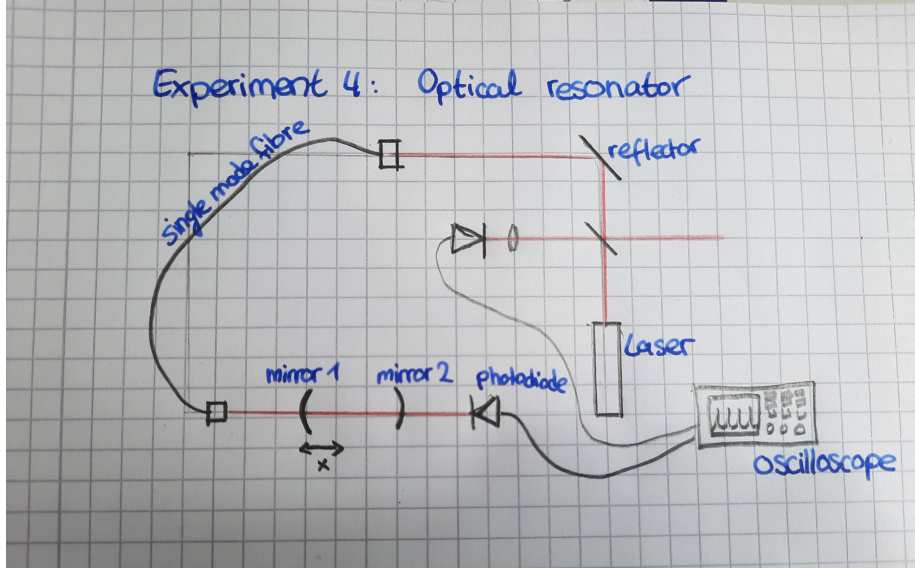 Experiment 4: Optical resonator
single mode fibre
reflector
Laser
mirror 1
mirror 2
photodiode
x
oscilloscope